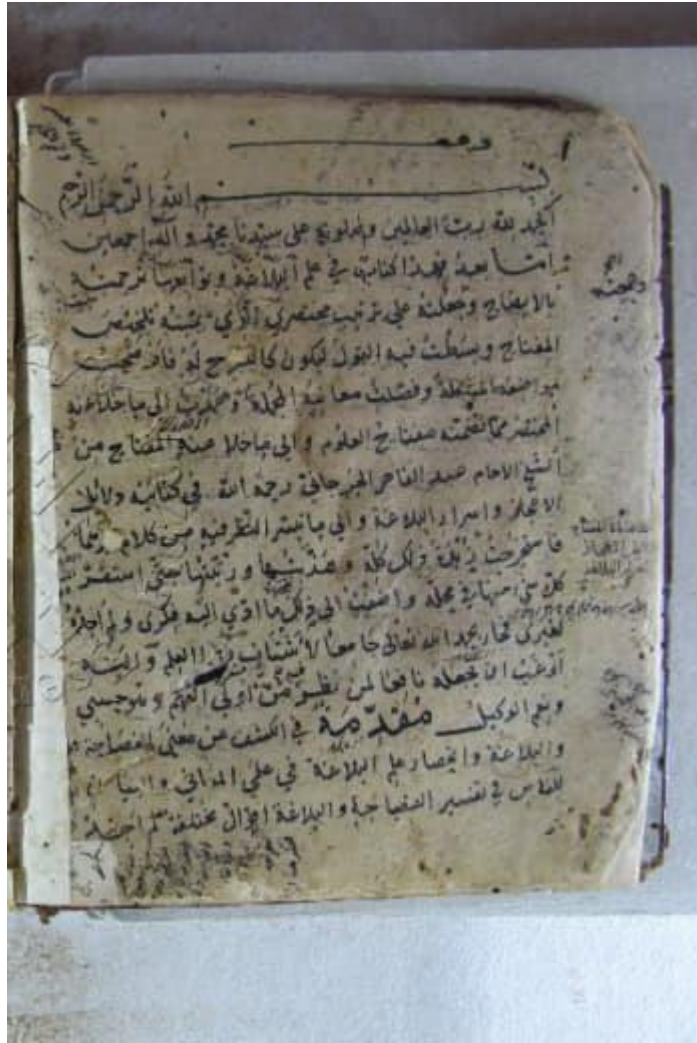 وقف
بسم الله الرحمن الرحيم
الحمد لله رب العالمين والصلوة على سيدنا محمد وآله اجمعين
اما بعد فهذا كتاب في علم البلاغة وتوابعها ترجمته
بالايضاح وجعلته على ترتيب مختصري الذي سميته تلخيص
المفتاح وبسطت فيه القول ليكون كالشرح له فاوضحت
مواضعه المشكلة وفصلت معانيه المجملة وعمدت الى ما خلا عنه
المختصر مما تضمنه مفتاح العلوم والى ما خلا عنه المفتاح من
الشيخ الامام عبد القاهر الجرجاني رحمه الله في كتابيه دلائل
الاعجاز واسرار البلاغة والى ما تيسر النظر فيه من كلام غيرهما
فاستخرجت زبدة ذلك كله وهذبتها ورتبتها حتى استقر
كل شي منها في محله واضفت الى ذلك ما ادى اليه فكري ولم اجده
لغيري فجاء بحمد الله تعالى جامعا لاشتات هذا العلم واليه
ارغب ان يجعله نافعا لمن نظر فيه من اولي الفهم وهو حسبي
ونعم الوكيل مقدمة في الكشف عن معنى الفصاحة
والبلاغة وانحصار علم البلاغة في علمي المعاني والبيان
للناس في تفسير الفصاحة والبلاغة اقوال مختلفة لم اجد